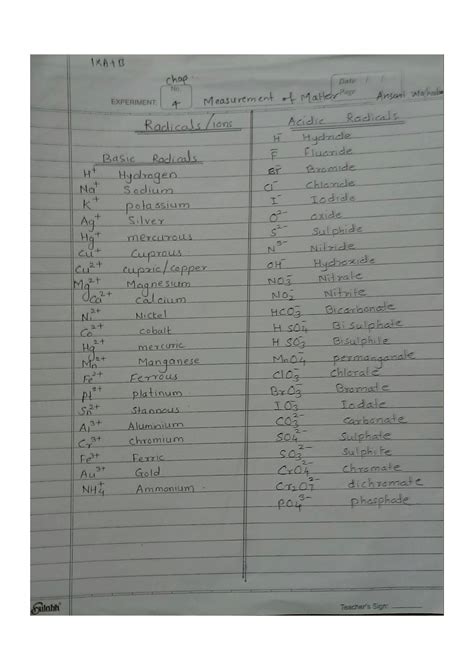 IXA+B
Chap
EXPERIMENT No. 4 Measurement of Matter
Date / /
Page
Ansari
Radicals/ions
Basic Radicals
H⁺ Hydrogen
Na⁺ Sodium
K⁺ potassium
Ag⁺ Silver
Hg⁺ mercurous
Cu⁺ Cuprous
Cu²⁺ cupric/copper
Mg²⁺ Magnesium
Ca²⁺ calcium
Ni²⁺ Nickel
Co²⁺ cobalt
Hg²⁺ mercuric
Mn²⁺ Manganese
Fe²⁺ Ferrous
pt²⁺ platinum
Sn²⁺ Stannous
Al³⁺ Aluminium
Cr³⁺ chromium
Fe³⁺ Ferric
Au³⁺ Gold
NH₄⁺ Ammonium
Acidic Radicals
H⁻ Hydride
F⁻ Fluoride
Br⁻ Bromide
Cl⁻ Chloride
I⁻ Iodide
O²⁻ oxide
S²⁻ Sulphide
N³⁻ Nitride
OH⁻ Hydroxide
NO₃⁻ Nitrate
NO₂⁻ Nitrite
HCO₃⁻ Bicarbonate
HSO₄⁻ Bisulphate
HSO₃⁻ Bisulphite
MnO₄⁻ permanganate
ClO₃⁻ Chlorate
BrO₃⁻ Bromate
IO₃⁻ Iodate
CO₃²⁻ carbonate
SO₄²⁻ Sulphate
SO₃²⁻ Sulphite
CrO₄²⁻ Chromate
Cr₂O₇²⁻ dichromate
PO₄³⁻ phosphate
Sulabh
Teacher's Sign: